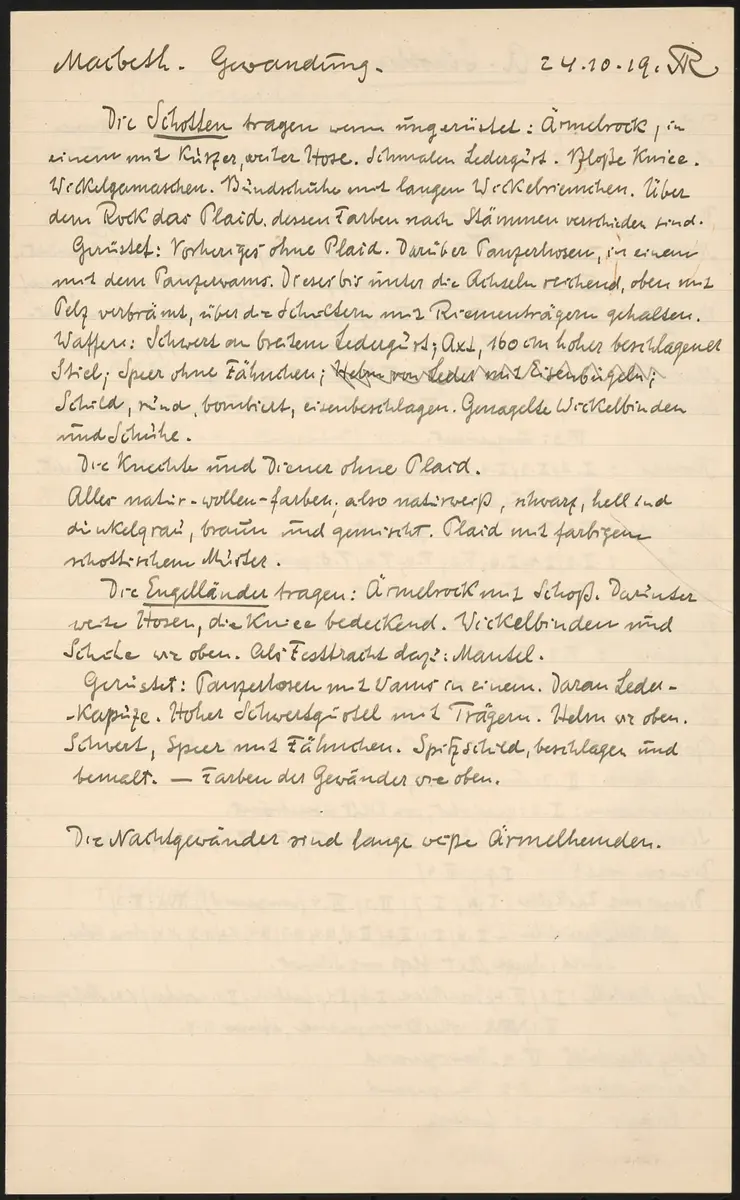 Macbeth. Gewandung. 24.10.19. AR
Die Schotten tragen wenn ungerüstet: Ärmelrock, in
einem mit kurzer, weiter Hose. Schmalen Ledergurt. Bloße Kniee.
Wickelgamaschen. Bundschuhe mit langen Wickelriemchen. Über
dem Rock das Plaid, dessen Farben nach Stämmen verschieden sind.
Gerüstet: Vorheriges ohne Plaid. Darüber Panzerhosen, in einem
mit dem Panzerwams. Dieses bis unter die Achseln reichend, oben mit
Pelz verbrämt, über die Schultern mit Riementrägern gehalten.
Waffen: Schwert an breitem Ledergurt; Axt, 160 cm hoher beschlagener
Stiel; Speer ohne Fähnchen; Helm von Leder mit Eisenbügeln;
Schild, rund, bombiert, eisenbeschlagen. Genagelte Wickelbinden
und Schuhe.
Die Knechte und Diener ohne Plaid.
Alles natur-wollen-farben, also naturweiß, schwarz, hell und
dunkelgrau, braun und gemischt. Plaid mit farbigem
schottischem Muster.
Die Engelländer tragen: Ärmelrock mit Schoß. Darunter
weite Hosen, die Kniee bedeckend. Wickelbinden und
Schuhe wie oben. Als Festtracht dazu: Mantel.
Gerüstet: Panzerhosen mit Wams in einem. Daran Leder-
-Kapuze. Hoher Schwertgürtel mit Trägern. Helm wie oben.
Schwert, Speer mit Fähnchen. Spitzschild, beschlagen und
bemalt. — Farben der Gewänder wie oben.
Die Nachtgewänder sind lange weiße Ärmelhemden.